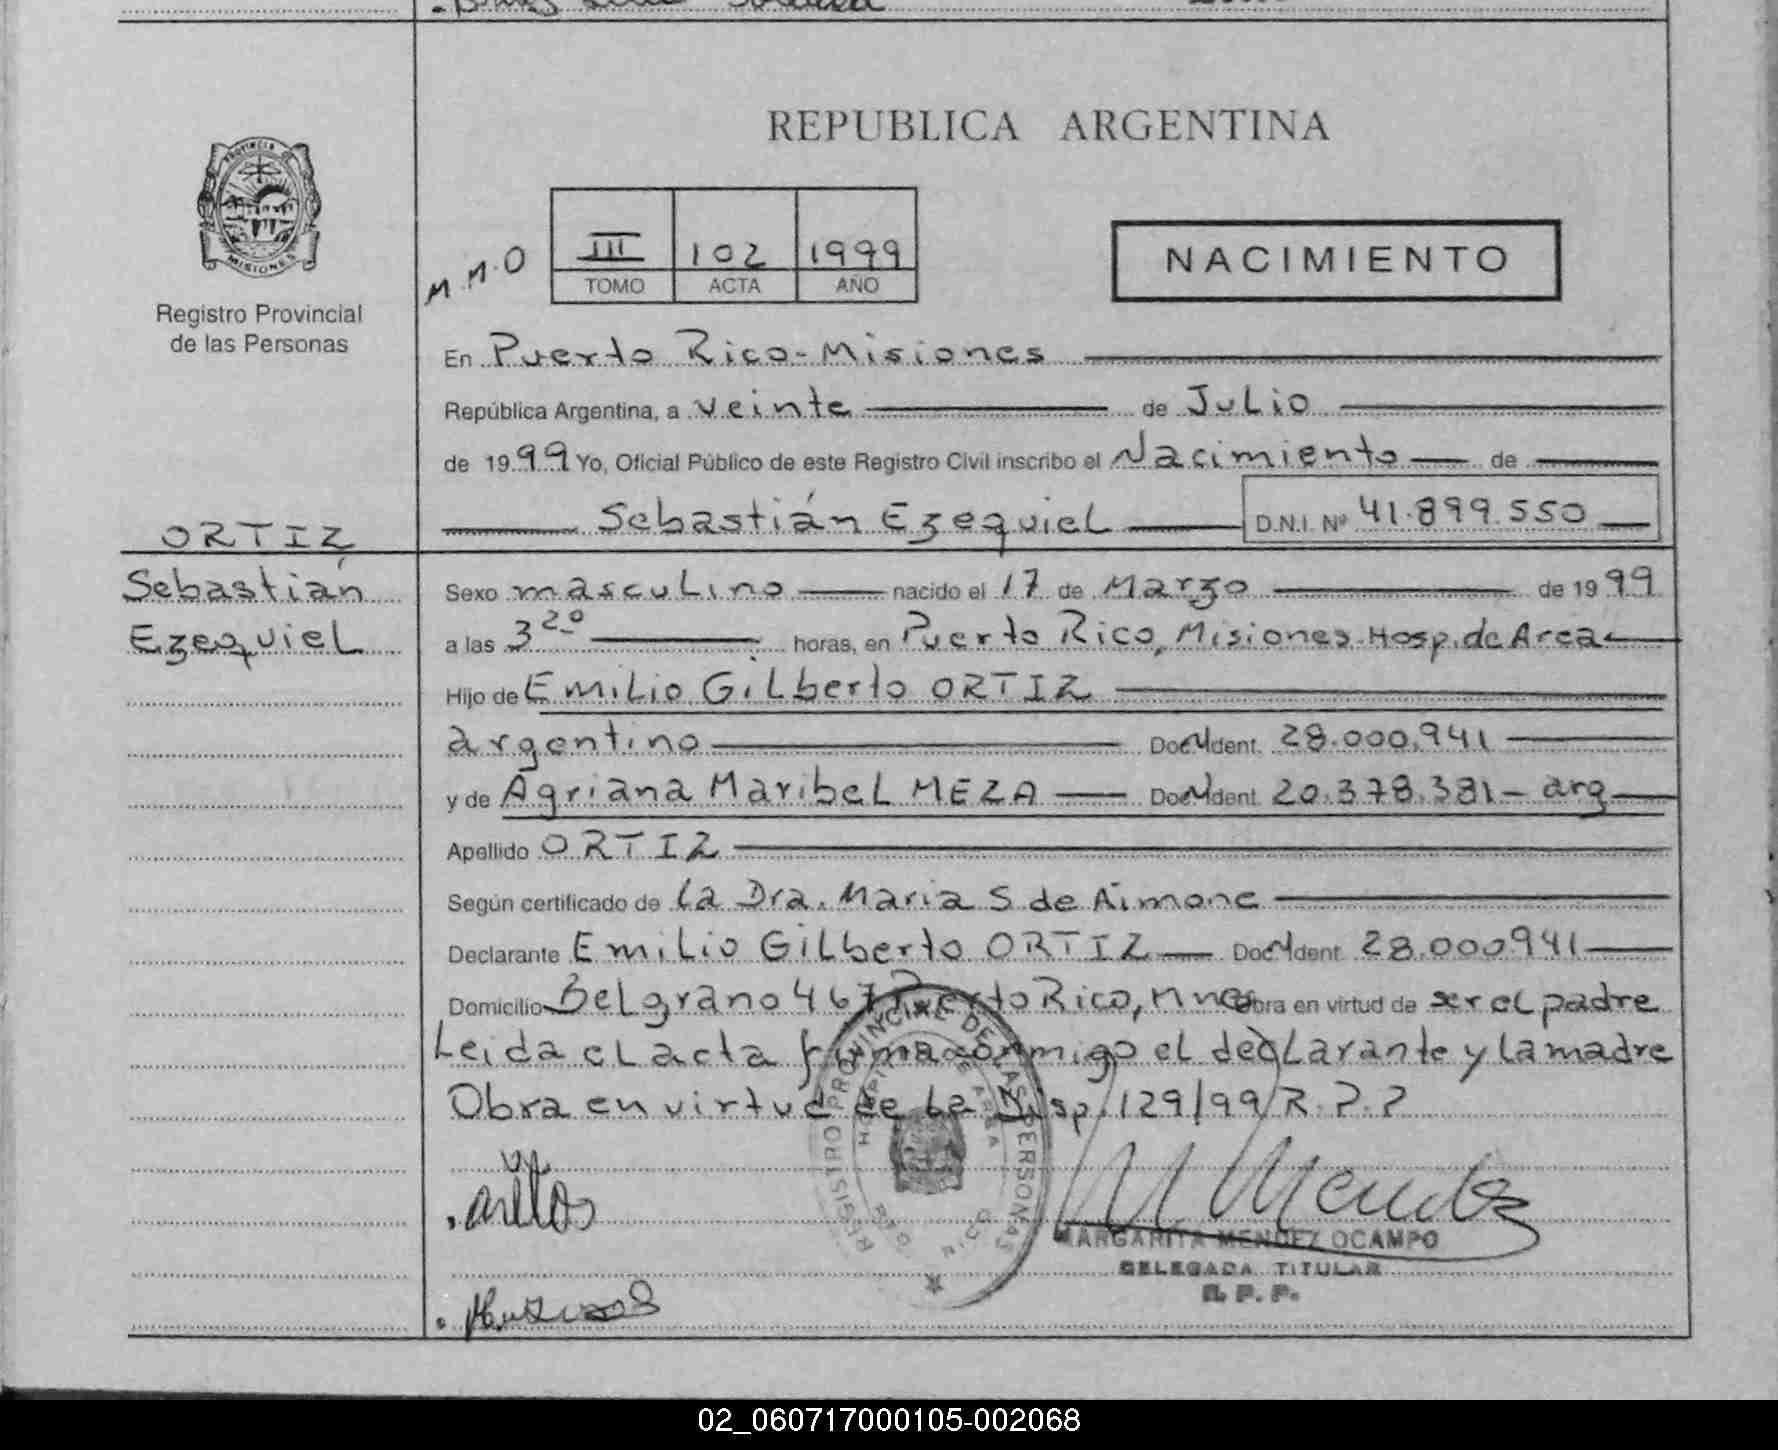 PROVINCIA DE
MISIONES
Registro Provincial
de las Personas
REPUBLICA ARGENTINA
M.M.O
III 102 1999
TOMO ACTA AÑO
NACIMIENTO
En Puerto Rico-Misiones
República Argentina, a veinte de Julio
de 1999 Yo, Oficial Público de este Registro Civil inscribo el Nacimiento de
Sebastián Ezequiel D.N.I. Nº 41.899.550
ORTIZ
Sebastián
Ezequiel
Sexo masculino nacido el 17 de Marzo de 1999
a las 3 20 horas, en Puerto Rico, Misiones-Hosp. de Area
Hijo de Emilio Gilberto ORTIZ
argentino Doc. Ident. 28.000.941
y de Agriana Maribel MEZA Doc. Ident. 20.378.381 - arg
Apellido ORTIZ
Según certificado de la Dra. Maria S de Aimone
Declarante Emilio Gilberto ORTIZ Doc. Ident. 28.000941
Domicilio Belgrano 467 Puerto Rico, Mnes Obra en virtud de ser el padre
Leida el acta firma conmigo el declarante y la madre
Obra en virtud de la Disp. 129/99 R.P.P
REGISTRO PROVINCIAL DE LAS PERSONAS
HOSPITAL DE AREA
PTO. RICO
M Mendez
MARGARITA MENDEZ OCAMPO
DELEGADA TITULAR
R. P. P.
02_060717000105-002068